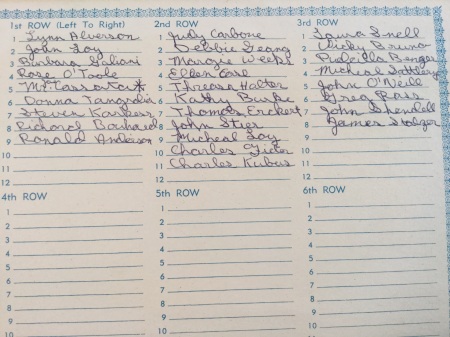 1st ROW (Left To Right)
1 Lynn Alverson
2 John Loy
3 Barbara Galiani
4 Rose O'Toole
5
6 Donna
7 Steven
8 Richard
9 Ronald Anderson
10
11
12
2nd ROW
1 Judy Carbone
2 Debbie
3 Margie Weeks
4 Ellen
5 Theresa Halter
6 Kathy Burke
7 Thomas Erckert
8 John Stier
9 Micheal Loy
10 Charles
11 Charles Kubus
12
3rd ROW
1 Laura Snell
2 Vicky Bruno
3 Pricilla
4 Micheal
5 John O'Neill
6 Greg Ross
7 John Shendell
8 James
9
10
11
12
4th ROW
1
2
3
4
5
6
7
8
9
10
5th ROW
1
2
3
4
5
6
7
8
9
10
6th ROW
1
2
3
4
5
6
7
8
9
10